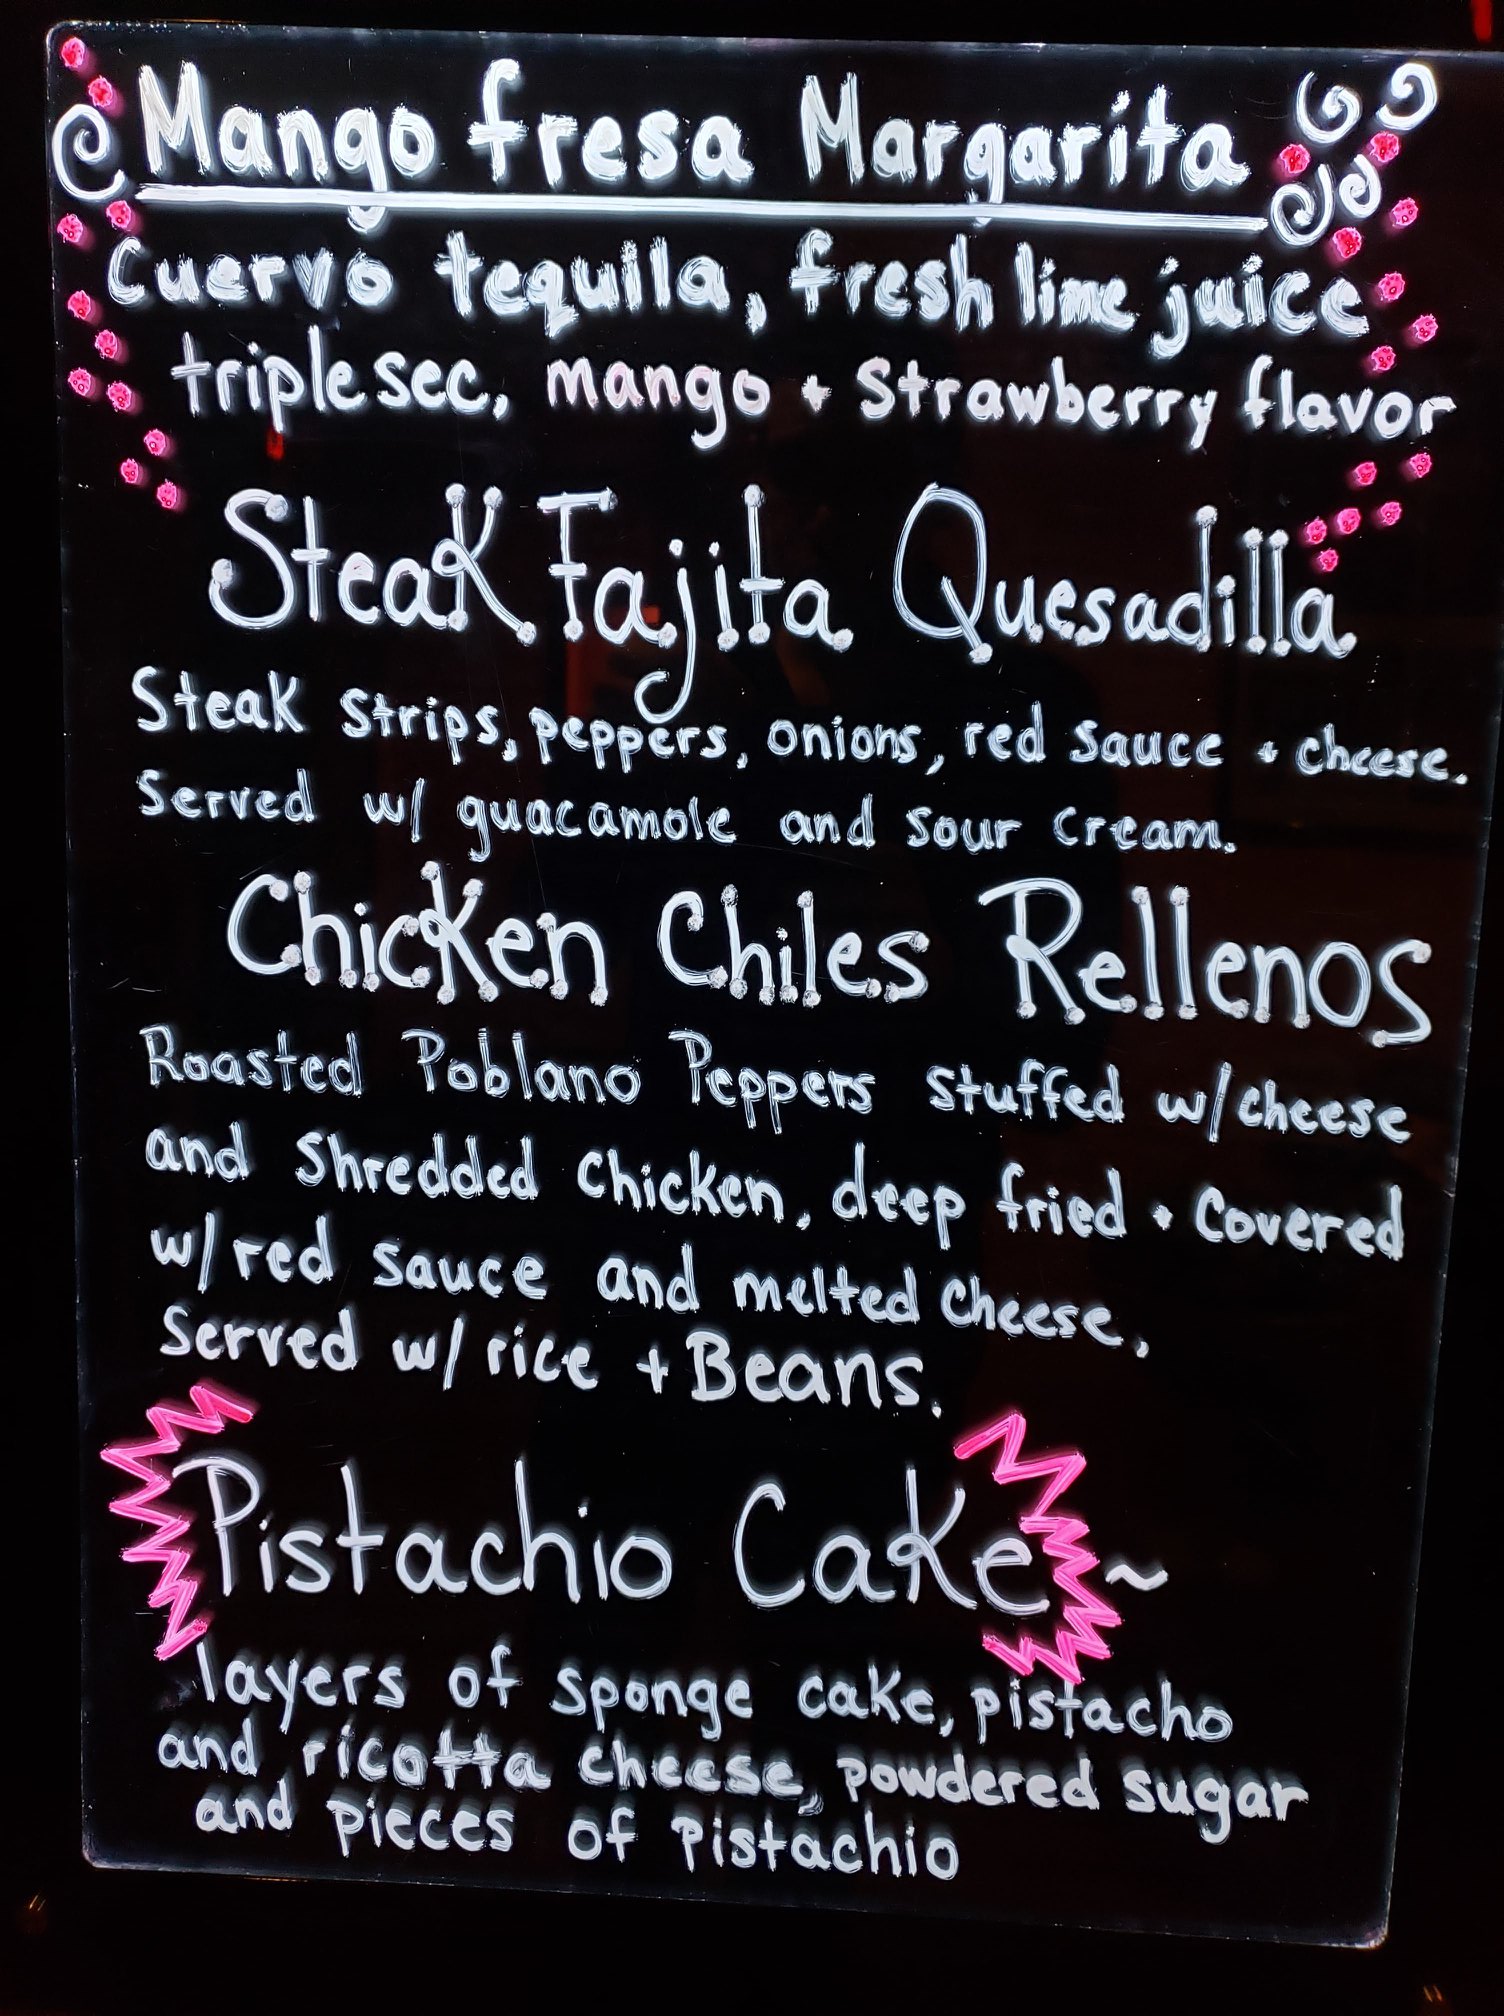 Mango fresa Margarita
Cuervo tequila, fresh lime juice
triple sec, mango + Strawberry flavor
Steak Fajita Quesadilla
Steak strips, peppers, onions, red sauce + cheese.
Served w/ guacamole and sour cream.
Chicken Chiles Rellenos
Roasted Poblano Peppers stuffed w/cheese
and shredded chicken, deep fried + covered
w/red sauce and melted cheese,
Served w/ rice + Beans.
Pistachio Cake ~
layers of sponge cake, pistacho
and ricotta cheese, powdered sugar
and pieces of pistachio